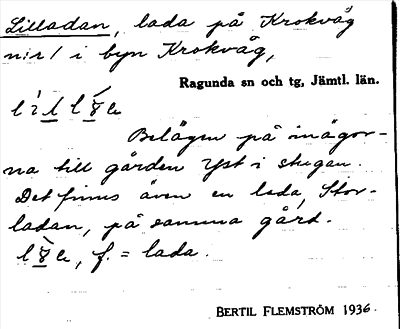 Lilladan, lada på Krokvåg
n:r 1 i byn Krokvåg,
Ragunda sn och tg, Jämtl. län.
Belägen på inägor-
na till gården Yst i stugan.
Det finns även en lada, Stor-
ladan, på samma gård.
f. = lada.
BERTIL FLEMSTRÖM 1936.